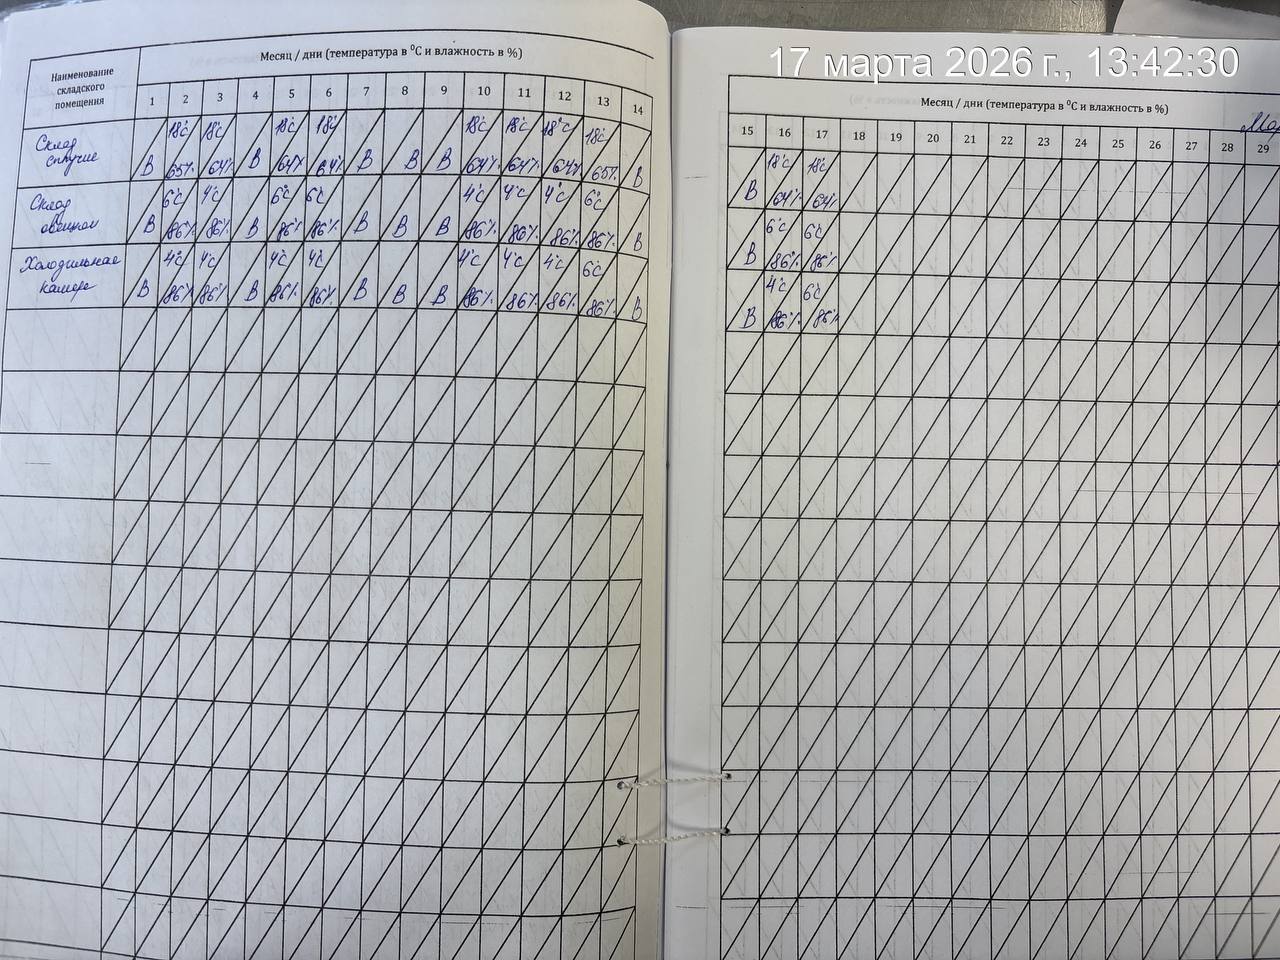 17 марта 2026 г., 13:42:30
Наименование складского помещения
Месяц / дни (температура в ⁰С и влажность в %)
1 2 3 4 5 6 7 8 9 10 11 12 13 14
Склад сыпучие
18°С 18°С 18°С 18°С 18°С 18°С 18°С 18°С
В 65% 64% В 64% 64% В В В 64% 64% 64% 65% В
Склад овощной
6°С 4°С 6°С 6°С 4°С 4°С 4°С 6°С
В 86% 86% В 86% 86% В В В 86% 86% 86% 86% В
Холодильная камера
4°С 4°С 4°С 4°С 4°С 4°С 4°С 6°С
В 86% 86% В 86% 86% В В В 86% 86% 86% 86% В
Месяц / дни (температура в ⁰С и влажность в %)
15 16 17 18 19 20 21 22 23 24 25 26 27 28 29
18°С 18°С
В 64% 64%
6°С 6°С
В 86% 86%
4°С 6°С
В 86% 86%